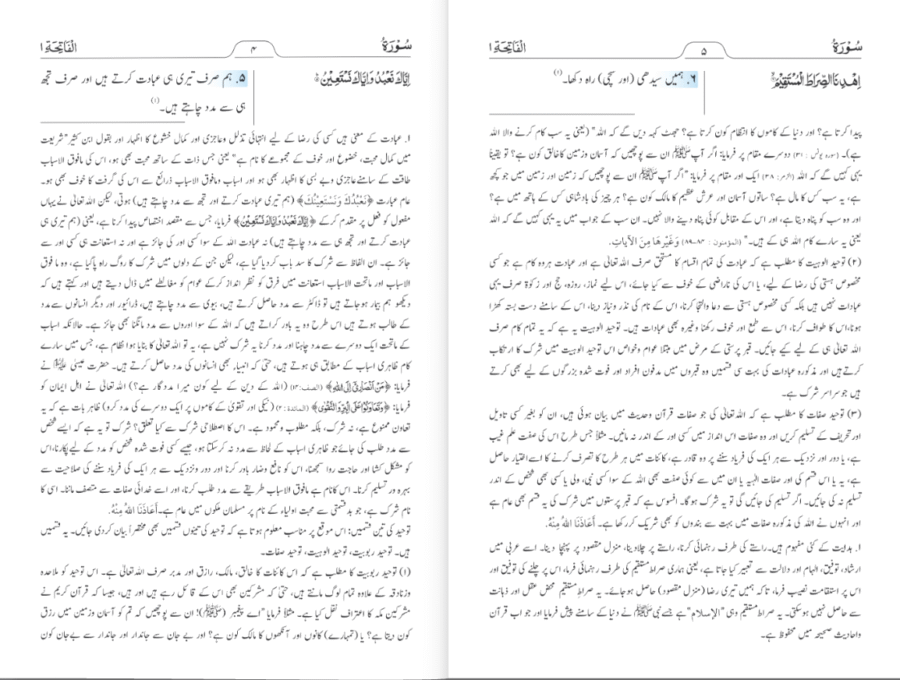 سُورَةُ
۴
الْفَاتِحَة ۱
إِيَّاكَ نَعْبُدُ وَإِيَّاكَ نَسْتَعِينُ
۵۔ ہم صرف تیری ہی عبادت کرتے ہیں اور صرف تجھ
ہی سے مدد چاہتے ہیں۔(۱)
۱۔ عبادت کے معنی ہیں کسی کی رضا کے لیے انتہائی تذلل وعاجزی اور کمال خشوع کا اظہار اور بقول ابن کثیر "شریعت
میں کمال محبت، خضوع اور خوف کے مجموعے کا نام ہے" یعنی جس ذات کے ساتھ محبت بھی ہو، اس کی مافوق الاسباب
طاقت کے سامنے عاجزی وبے بسی کا اظہار بھی ہو اور اسباب ومافوق الاسباب ذرائع سے اس کی گرفت کا خوف بھی ہو۔
عام عبارت ﴿نَعْبُدُكَ وَنَسْتَعِينُكَ﴾ (ہم تیری عبادت کرتے اور تجھ سے مدد چاہتے ہیں) ہوتی، لیکن اللہ تعالیٰ نے یہاں
مفعول کو فعل پر مقدم کرکے ﴿إِيَّاكَ نَعْبُدُ وَإِيَّاكَ نَسْتَعِينُ﴾ فرمایا، جس سے مقصد اختصاص پیدا کرنا ہے، یعنی (ہم تیری ہی
عبادت کرتے اور تجھ ہی سے مدد چاہتے ہیں) نہ عبادت اللہ کے سوا کسی اور کی جائز ہے اور نہ استعانت ہی کسی اور سے
جائز ہے۔ ان الفاظ سے شرک کا سد باب کردیا گیا ہے، لیکن جن کے دلوں میں شرک کا روگ راہ پاگیا ہے، وہ مافوق
الاسباب اور ماتحت الاسباب استعانت میں فرق کو نظر انداز کرکے عوام کو مغالطے میں ڈال دیتے ہیں اور کہتے ہیں کہ
دیکھو ہم بیمار ہوجاتے ہیں تو ڈاکٹر سے مدد حاصل کرتے ہیں، بیوی سے مدد چاہتے ہیں، ڈرائیور اور دیگر انسانوں سے مدد
کے طالب ہوتے ہیں اس طرح وہ یہ باور کراتے ہیں کہ اللہ کے سوا اوروں سے مدد مانگنا بھی جائز ہے۔ حالانکہ اسباب
کے ماتحت ایک دوسرے سے مدد چاہنا اور مدد کرنا یہ شرک نہیں ہے، یہ تو اللہ تعالیٰ کا بنایا ہوا نظام ہے، جس میں سارے
کام ظاہری اسباب کے مطابق ہی ہوتے ہیں، حتیٰ کہ انبیاء بھی انسانوں کی مدد حاصل کرتے ہیں۔ حضرت عیسیٰ نے
فرمایا: ﴿مَنْ أَنصَارِي إِلَى اللهِ﴾ (الصف:۱۴) (اللہ کے دین کے لیے کون میرا مددگار ہے؟) اللہ تعالیٰ نے اہل ایمان کو
فرمایا: ﴿وَتَعَاوَنُوا عَلَى الْبِرِّ وَالتَّقْوَى﴾ (المائدة:۲) (نیکی اور تقویٰ کے کاموں پر ایک دوسرے کی مدد کرو) ظاہر بات ہے کہ یہ
تعاون ممنوع ہے، نہ شرک، بلکہ مطلوب و محمود ہے۔ اس کا اصطلاحی شرک سے کیا تعلق؟ شرک تو یہ ہے کہ ایسے شخص
سے مدد طلب کی جائے جو ظاہری اسباب کے لحاظ سے مدد نہ کرسکتا ہو، جیسے کسی فوت شدہ شخص کو مدد کے لیے پکارنا، اس کو
مشکل کشا اور حاجت روا سمجھنا، اس کو نافع وضار باور کرنا اور دور ونزدیک سے ہر ایک کی فریاد سننے کی صلاحیت سے
بہرہ ور تسلیم کرنا۔ اس کا نام ہے مافوق الاسباب طریقے سے مدد طلب کرنا، اور اسے خدائی صفات سے متصف ماننا۔ اسی کا
نام شرک ہے، جو بدقسمتی سے محبت اولیاء کے نام پر مسلمان ملکوں میں عام ہے۔ أَعَاذَنَا اللهُ مِنْهُ.
توحید کی تین قسمیں: اس موقع پر مناسب معلوم ہوتا ہے کہ توحید کی تینوں قسمیں بھی مختصراً بیان کردی جائیں۔ یہ قسمیں
ہیں۔ توحید ربوبیت، توحید الوہیت، توحید صفات۔
(۱) توحید ربوبیت کا مطلب ہے کہ اس کائنات کا خالق، مالک، رازق اور مدبر صرف اللہ تعالیٰ ہے۔ اس توحید کو ملاحدہ
وزنادقہ کے علاوہ تمام لوگ مانتے ہیں، حتیٰ کہ مشرکین بھی اس کے قائل رہے ہیں اور ہیں، جیسا کہ قرآن کریم نے
مشرکین مکہ کا اعتراف نقل کیا ہے۔ مثلاً فرمایا "اے پیغمبر (ﷺ)! ان سے پوچھیں کہ تم کو آسمان وزمین میں رزق
کون دیتا ہے؟ یا (تمہارے) کانوں اور آنکھوں کا مالک کون ہے؟ اور بے جان سے جاندار اور جاندار سے بے جان کون
سُورَةُ
۵
الْفَاتِحَة ۱
اهْدِنَا الصِّرَاطَ الْمُسْتَقِيمَ
۶۔ ہمیں سیدھی (اور سچی) راہ دکھا۔(۱)
پیدا کرتا ہے؟ اور دنیا کے کاموں کا انتظام کون کرتا ہے؟ جھٹ کہہ دیں گے کہ اللہ" (یعنی یہ سب کام کرنے والا اللہ
ہے)۔ (سورہ یونس : ۳۱) دوسرے مقام پر فرمایا: اگر آپ ﷺ ان سے پوچھیں کہ آسمان وزمین کا خالق کون ہے؟ تو یقیناً
یہی کہیں گے کہ اللہ (الزمر:۳۸) ایک اور مقام پر فرمایا: "اگر آپ ﷺ ان سے پوچھیں کہ زمین اور زمین میں جو کچھ
ہے، یہ سب کس کا مال ہے؟ ساتوں آسمان اور عرش عظیم کا مالک کون ہے؟ ہر چیز کی بادشاہی کس کے ہاتھ میں ہے؟
اور وہ سب کو پناہ دیتا ہے، اور اس کے مقابل کوئی پناہ دینے والا نہیں۔ ان سب کے جواب میں یہ یہی کہیں گے کہ اللہ
یعنی یہ سارے کام اللہ ہی کے ہیں۔" (المؤمنون : ۸۴-۸۹) وَغَيْرُهَا مِنَ الآيَاتِ.
(۲) توحید الوہیت کا مطلب ہے کہ عبادت کی تمام اقسام کا مستحق صرف اللہ تعالیٰ ہے اور عبادت ہر وہ کام ہے جو کسی
مخصوص ہستی کی رضا کے لیے، یا اس کی ناراضی کے خوف سے کیا جائے، اس لیے نماز، روزہ، حج اور زکوٰۃ صرف یہی
عبادات نہیں ہیں بلکہ کسی مخصوص ہستی سے دعا والتجا کرنا، اس کے نام کی نذر ونیاز دینا، اس کے سامنے دست بستہ کھڑا
ہونا، اس کا طواف کرنا، اس سے طمع اور خوف رکھنا وغیرہ بھی عبادات ہیں۔ توحید الوہیت یہ ہے کہ یہ تمام کام صرف
اللہ تعالیٰ ہی کے لیے کیے جائیں۔ قبر پرستی کے مرض میں مبتلا عوام وخواص اس توحید الوہیت میں شرک کا ارتکاب
کرتے ہیں اور مذکورہ عبادات کی بہت سی قسمیں وہ قبروں میں مدفون افراد اور فوت شدہ بزرگوں کے لیے بھی کرتے
ہیں جو سراسر شرک ہے۔
(۳) توحید صفات کا مطلب ہے کہ اللہ تعالیٰ کی جو صفات قرآن وحدیث میں بیان ہوئی ہیں، ان کو بغیر کسی تاویل
اور تحریف کے تسلیم کریں اور وہ صفات اس انداز میں کسی اور کے اندر نہ مانیں۔ مثلاً جس طرح اس کی صفت علم غیب
ہے، یا دور اور نزدیک سے ہر ایک کی فریاد سننے پر وہ قادر ہے، کائنات میں ہر طرح کا تصرف کرنے کا اسے اختیار حاصل
ہے، یہ یا اس قسم کی اور صفات الٰہیہ یا ان میں سے کوئی صفت بھی اللہ کے سوا کسی نبی، ولی یا کسی بھی شخص کے اندر
تسلیم نہ کی جائیں۔ اگر تسلیم کی جائیں گی تو یہ شرک ہوگا۔ افسوس ہے کہ قبر پرستوں میں شرک کی یہ قسم بھی عام ہے
اور انہوں نے اللہ کی مذکورہ صفات میں بہت سے بندوں کو بھی شریک کررکھا ہے۔ أَعَاذَنَا اللهُ مِنْهُ.
۱۔ ہدایت کے کئی مفہوم ہیں۔ راستے کی طرف رہنمائی کرنا، راستے پر چلا دینا، منزل مقصود پر پہنچا دینا۔ اسے عربی میں
ارشاد، توفیق، الہام اور دلالت سے تعبیر کیا جاتا ہے، یعنی ہماری صراط مستقیم کی طرف رہنمائی فرما، اس پر چلنے کی توفیق اور
اس پر استقامت نصیب فرما، تاکہ ہمیں تیری رضا (منزل مقصود) حاصل ہوجائے۔ یہ صراط مستقیم محض عقل اور ذہانت
سے حاصل نہیں ہوسکتی۔ یہ صراط مستقیم وہی "الإسلام" ہے جسے نبی ﷺ نے دنیا کے سامنے پیش فرمایا اور جو اب قرآن
واحادیث صحیحہ میں محفوظ ہے۔